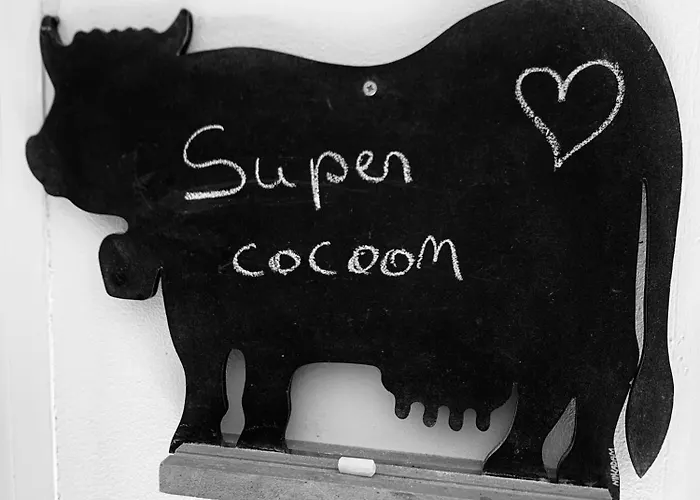 Super
cocoon